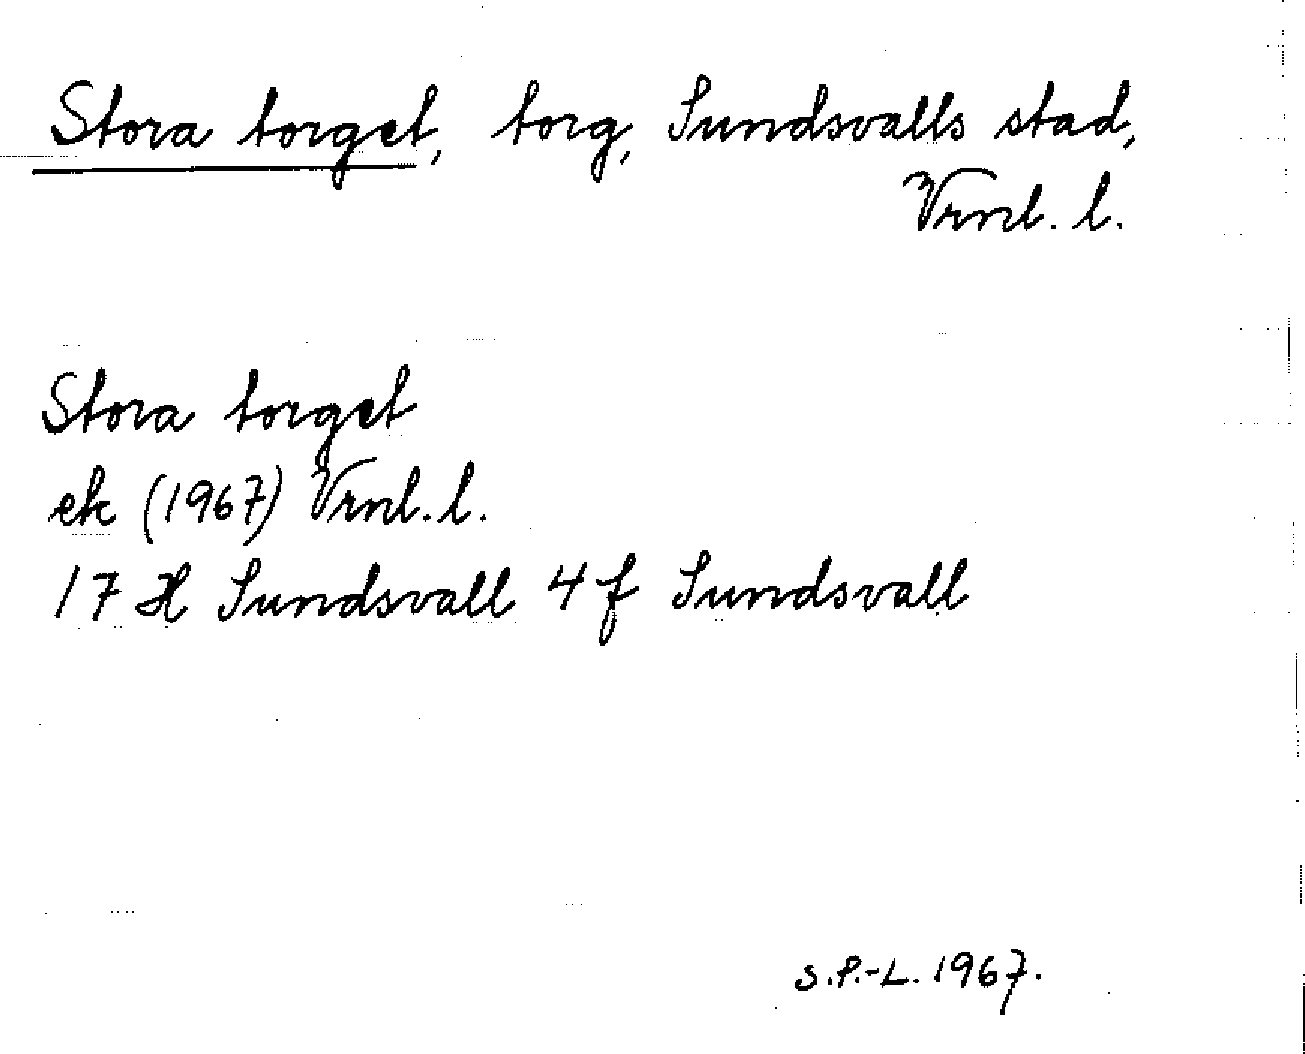 Stora torget, torg, Sundsvalls stad,
Vrnl. l.
Stora torget
ek (1967) Vrnl. l.
17 H Sundsvall 4 f Sundsvall
S.P.-L. 1967.